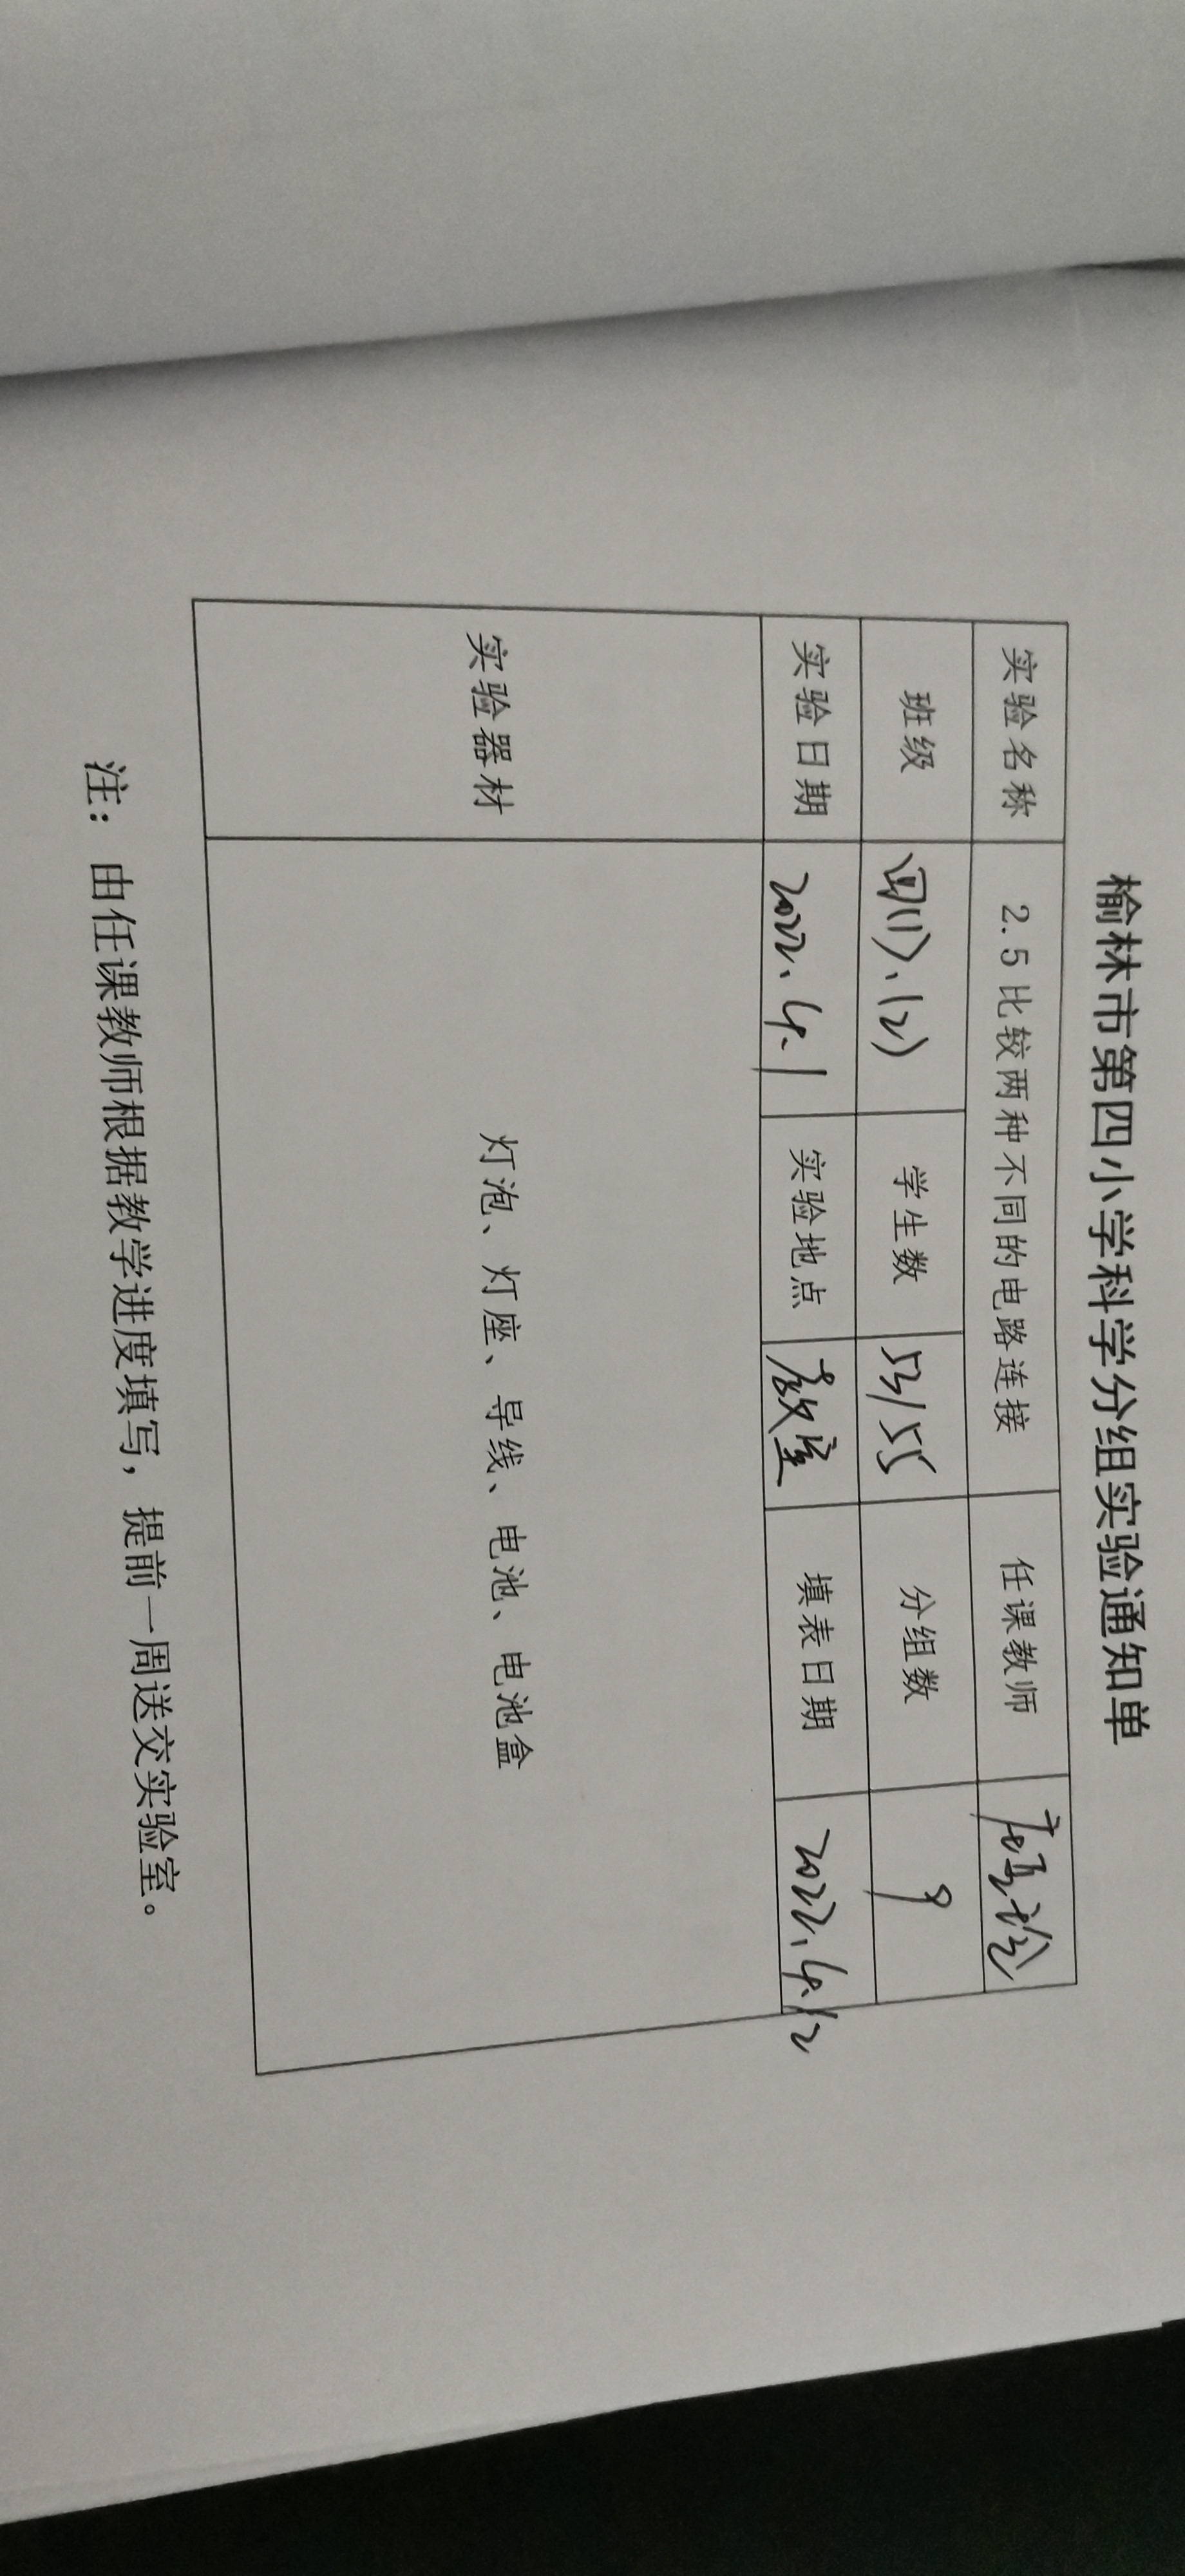 榆林市第四小学科学分组实验通知单
实验名称 2.5比较两种不同的电路连接 任课教师
班级 四(1)、(2) 学生数 53/55 分组数 9
实验日期 2022.4.1 实验地点 教室 填表日期 2022.4.12
实验器材 灯泡、灯座、导线、电池、电池盒
注：由任课教师根据教学进度填写，提前一周送交实验室。